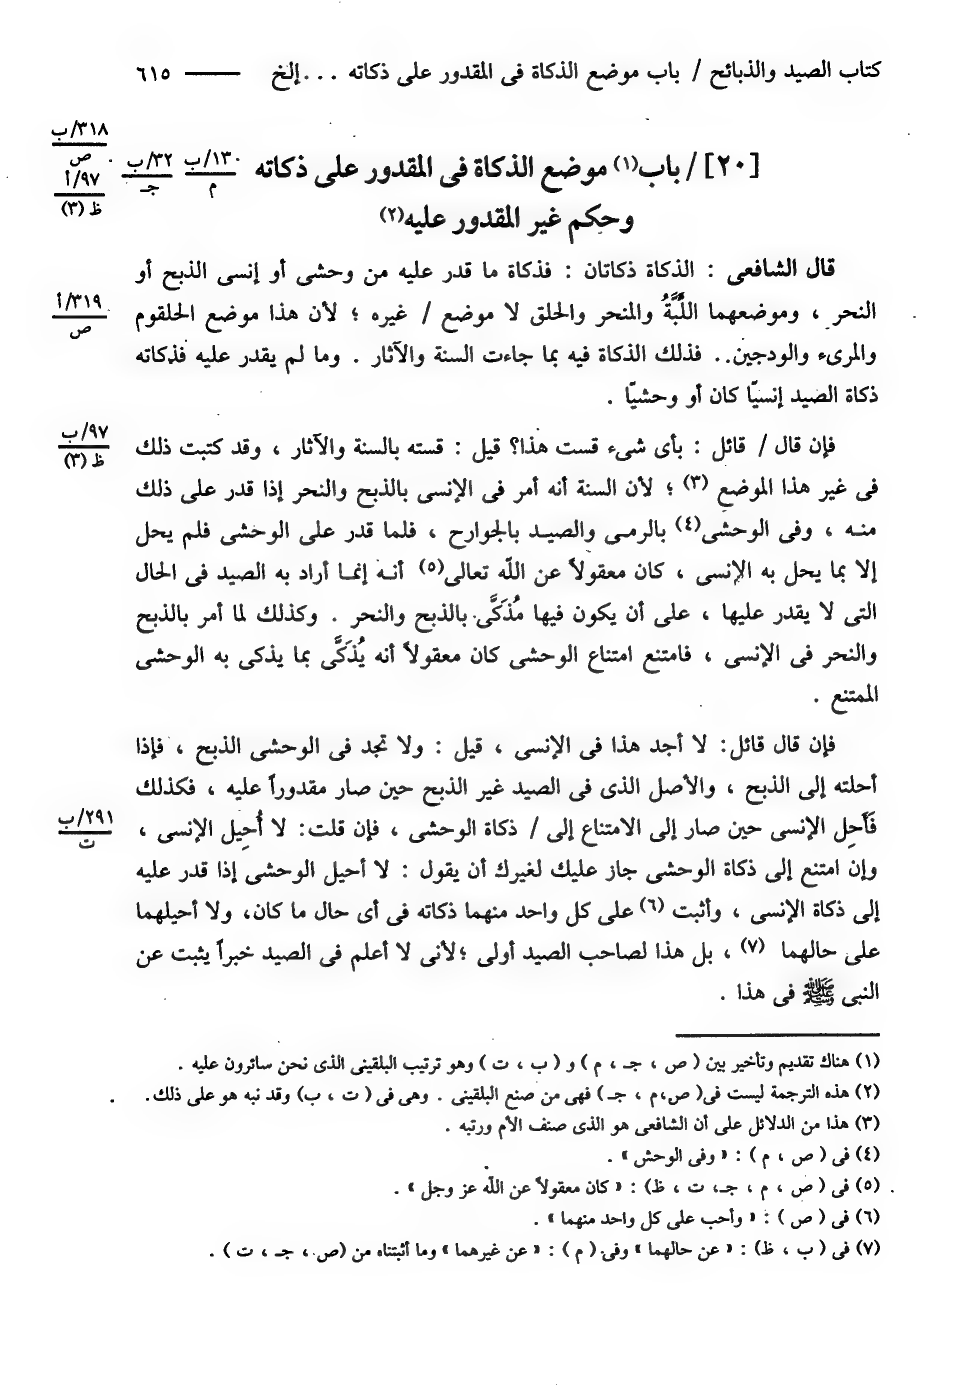 كتاب الصيد والذبائح / باب موضع الذكاة فى المقدور على ذكاته . . . إلخ ـــــ ٦١٥
[٢٠] / باب(١) موضع الذكاة فى المقدور على ذكاته
وحكم غير المقدور عليه(٢)
١٣٠/ب
م
٣٢/ب
جـ
٣١٨/ب
ص
٩٧/أ
ظ (٣)
قال الشافعى : الذكاة ذكاتان : فذكاة ما قدر عليه من وحشى أو إنسى الذبح أو
النحر ، وموضعهما اللَّبَّةُ والمنحر والحلق لا موضع / غيره ؛ لأن هذا موضع الحلقوم
٣١٩/أ
ص
والمرىء والودجين. . فذلك الذكاة فيه بما جاءت السنة والآثار . وما لم يقدر عليه فذكاته
ذكاة الصيد إنسيّا كان أو وحشيّا .
فإن قال / قائل : بأى شىء قست هذا؟ قيل : قسته بالسنة والآثار ، وقد كتبت ذلك
٩٧/ب
ظ (٣)
فى غير هذا الموضع (٣) ؛ لأن السنة أنه أمر فى الإنسى بالذبح والنحر إذا قدر على ذلك
منـه ، وفى الوحشى(٤) بالرمـى والصيـد بالجوارح ، فلما قدر على الوحشى فلم يحل
إلا بما يحل به الإنسى ، كان معقولاً عن اللّه تعالى(٥) أنـه إنمـا أراد به الصيد فى الحال
التى لا يقدر عليها ، على أن يكون فيها مُذَكًّى بالذبح والنحر . وكذلك لما أمر بالذبح
والنحر فى الإنسى ، فامتنع امتناع الوحشى كان معقولاً أنه يُذَكَّى بما يذكى به الوحشى
الممتنع .
فإن قال قائل: لا أجد هذا فى الإنسى ، قيل : ولا تجد فى الوحشى الذبح ، فإذا
أحلته إلى الذبح ، والأصل الذى فى الصيد غير الذبح حين صار مقدوراً عليه ، فكذلك
فَأَحِل الإنسى حين صار إلى الامتناع إلى / ذكاة الوحشى ، فإن قلت: لا أُحِيل الإنسى ،
٢٩١/ب
ت
وإن امتنع إلى ذكاة الوحشى جاز عليك لغيرك أن يقول : لا أحيل الوحشى إذا قدر عليه
إلى ذكاة الإنسى ، وأثبت (٦) على كل واحد منهما ذكاته فى أى حال ما كان، ولا أحيلهما
على حالهما (٧) ، بل هذا لصاحب الصيد أولى ؛لأنى لا أعلم فى الصيد خبراً يثبت عن
النبى ﷺ فى هذا .
(١) هناك تقديم وتأخير بين ( ص ، جـ ، م ) و ( ب ، ت ) وهو ترتيب البلقينى الذى نحن سائرون عليه .
(٢) هذه الترجمة ليست فى( ص،م ، جـ ) فهى من صنع البلقينى . وهى فى ( ت ، ب) وقد نبه هو على ذلك.
(٣) هذا من الدلائل على أن الشافعى هو الذى صنف الأم ورتبه .
(٤) فى ( ص ، م ) : « وفى الوحش » .
(٥) فى ( ص ، م ، جـ، ت ، ظ) : « كان معقولاً عن اللّه عز وجل » .
(٦) فى ( ص ) : « وأحب على كل واحد منهما » .
(٧) فى ( ب ، ظ) : « عن حالهما » وفى ( م ) : « عن غيرهما » وما أثبتناه من (ص ، جـ ، ت ) .